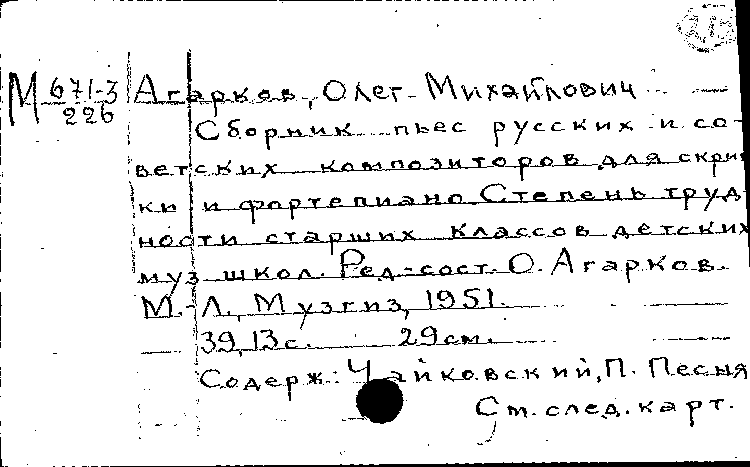 М 671-3
226
Агарков, Олег Михайлович
Сборник пьес русских и со-
ветских композиторов для скрип
ки и фортепиано Степень труд
ности старших классов детских
муз школ. Ред-сост. О. Агарков.
М.-Л., Музгиз, 1951.
39,13с. 29см.
Содерж: Чайковский, П. Песня
См. след. карт.